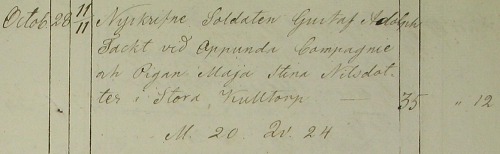 Octob. 28 11/11 Nyskrifne Soldaten Gustaf Adolph
Täckt vid Appunda Compagnie
och Pigan Maja Stina Nilsdot-
ter i Stora Kulltorp — 35 " 12
M. 20. Qv. 24